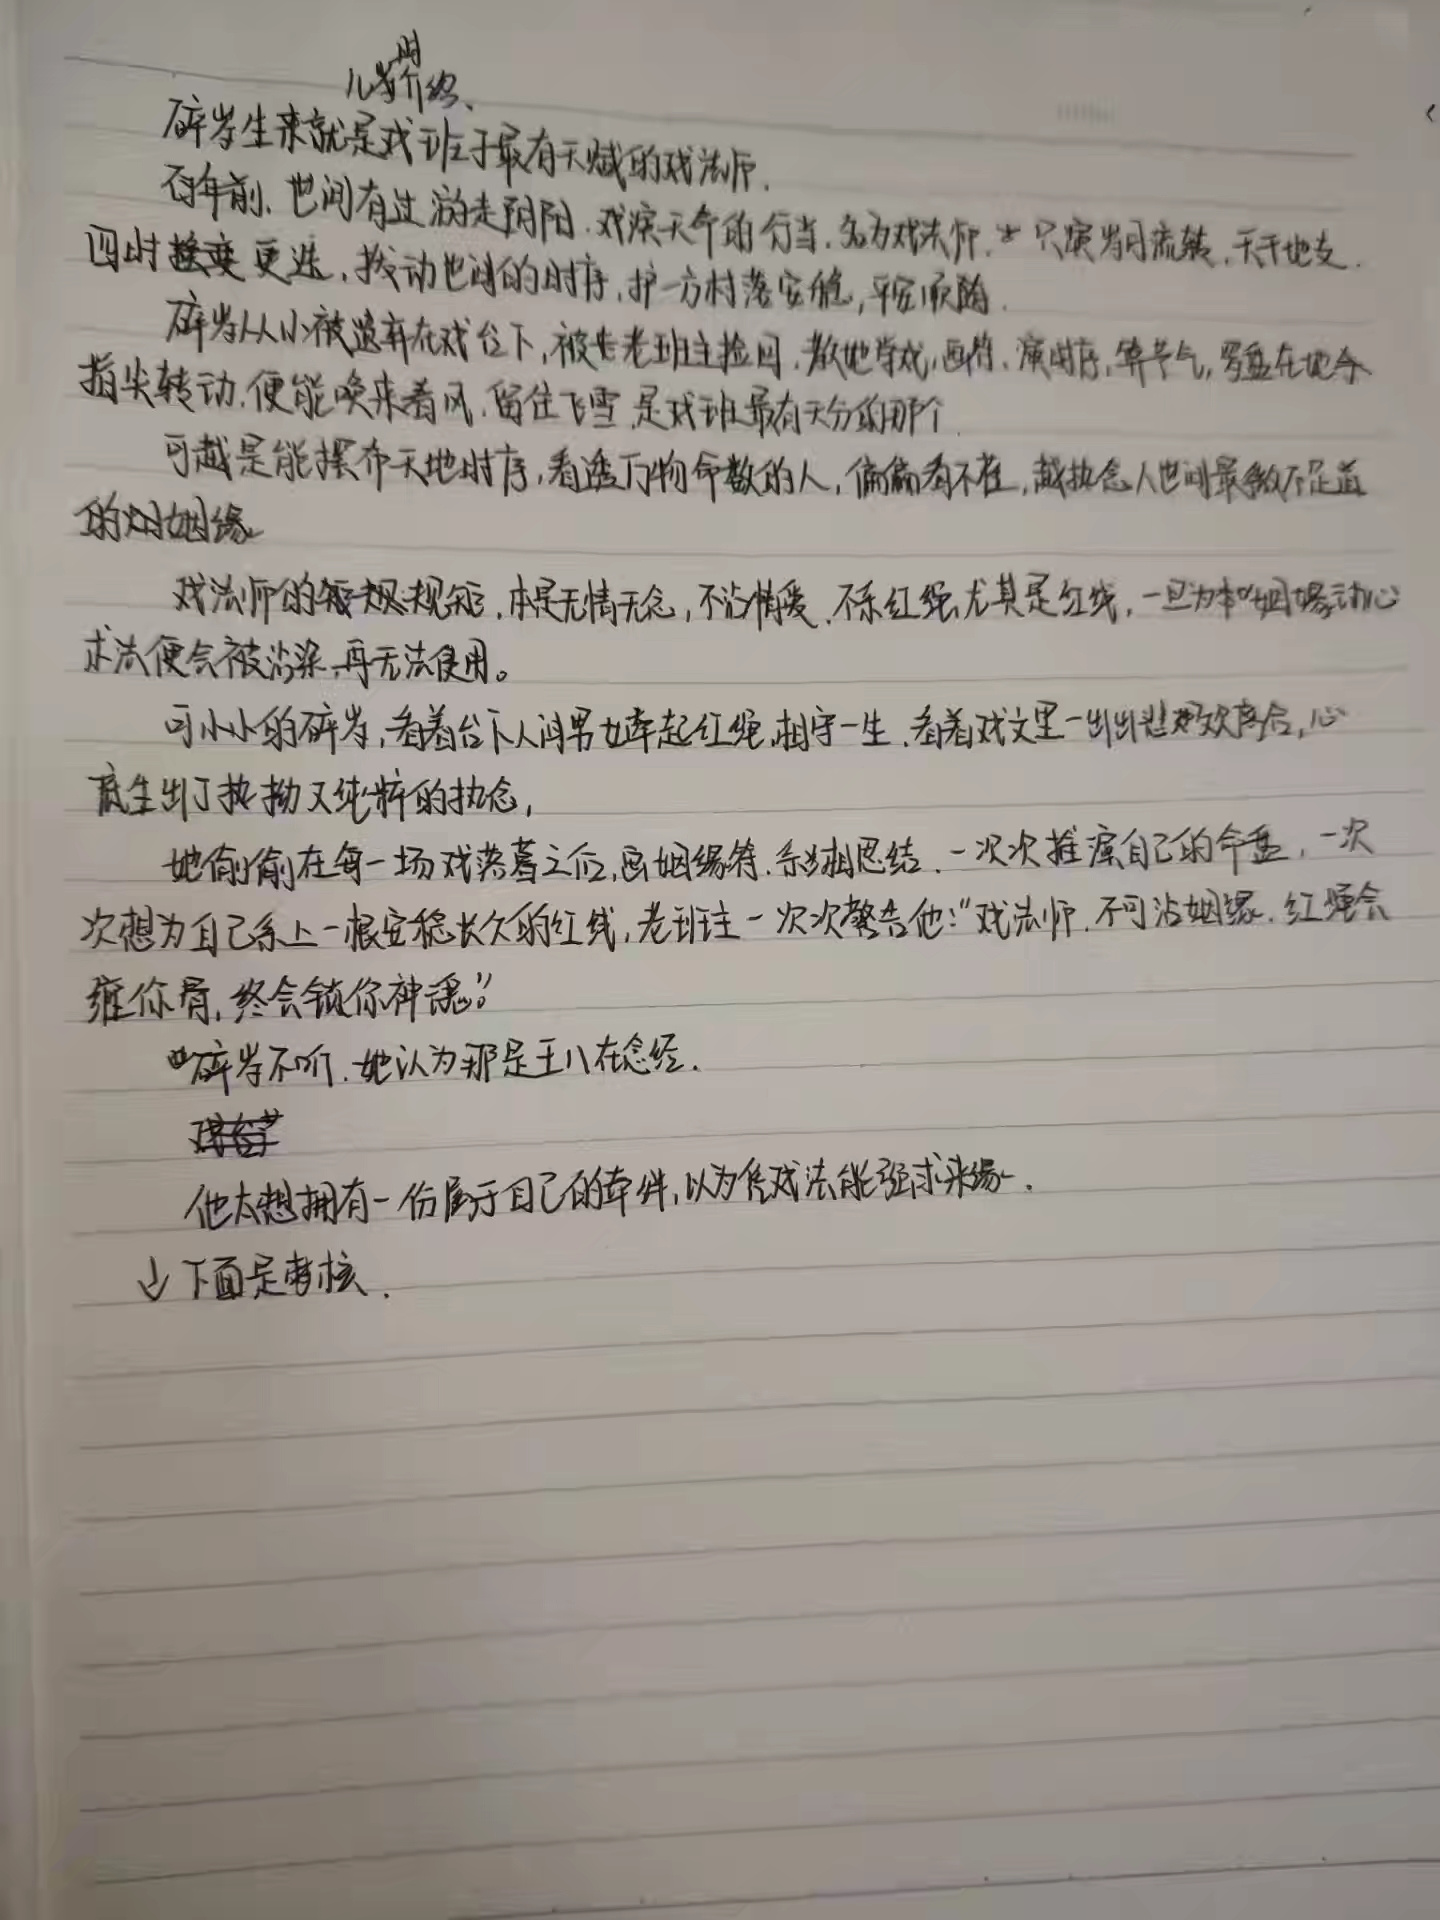 儿时介绍.
碎岁生来就是戏班子最有天赋的戏法师.
百年前、世间有过游走阴阳.戏演天命的行当.名为戏法师.只演岁月流转,天干地支.
四时更迭,拨动世间的时序,护一方村落安稳,平安顺随.
碎岁从小被遗弃在戏台下,被老班主捡回.教她学戏,画符.演时序,算节气,罗盘在她
指尖转动.便能唤来春风.留住飞雪.是戏班最有天分的那个.
可越是能摆布天地时序,看透万物命数的人,偏偏看不在,越执念人世间最微不足道
的姻缘
戏法师的规矩,本是无情无念,不沾情爱.不系红绳尤其是红线,一旦为姻缘动心
术法便会被沾染.再无法使用。
可小小的碎岁,看着台下人间男女牵起红绳,相守一生.看着戏文里一出出悲欢离合,心
底生出了执拗又纯粹的执念,
她偷偷在每一场戏落幕之后,画姻缘符.系相思结.一次次推演自己的命盘,一次
次想为自己系上一根安稳长久的红线,老班主一次次警告他:“戏法师.不可沾姻缘.红绳会
缠你骨,终会锁你神魂。”
碎岁不听.她认为那是王八在念经.
他太想拥有一份属于自己的牵绊,以为凭戏法能强求来缘.
↓下面是考核.